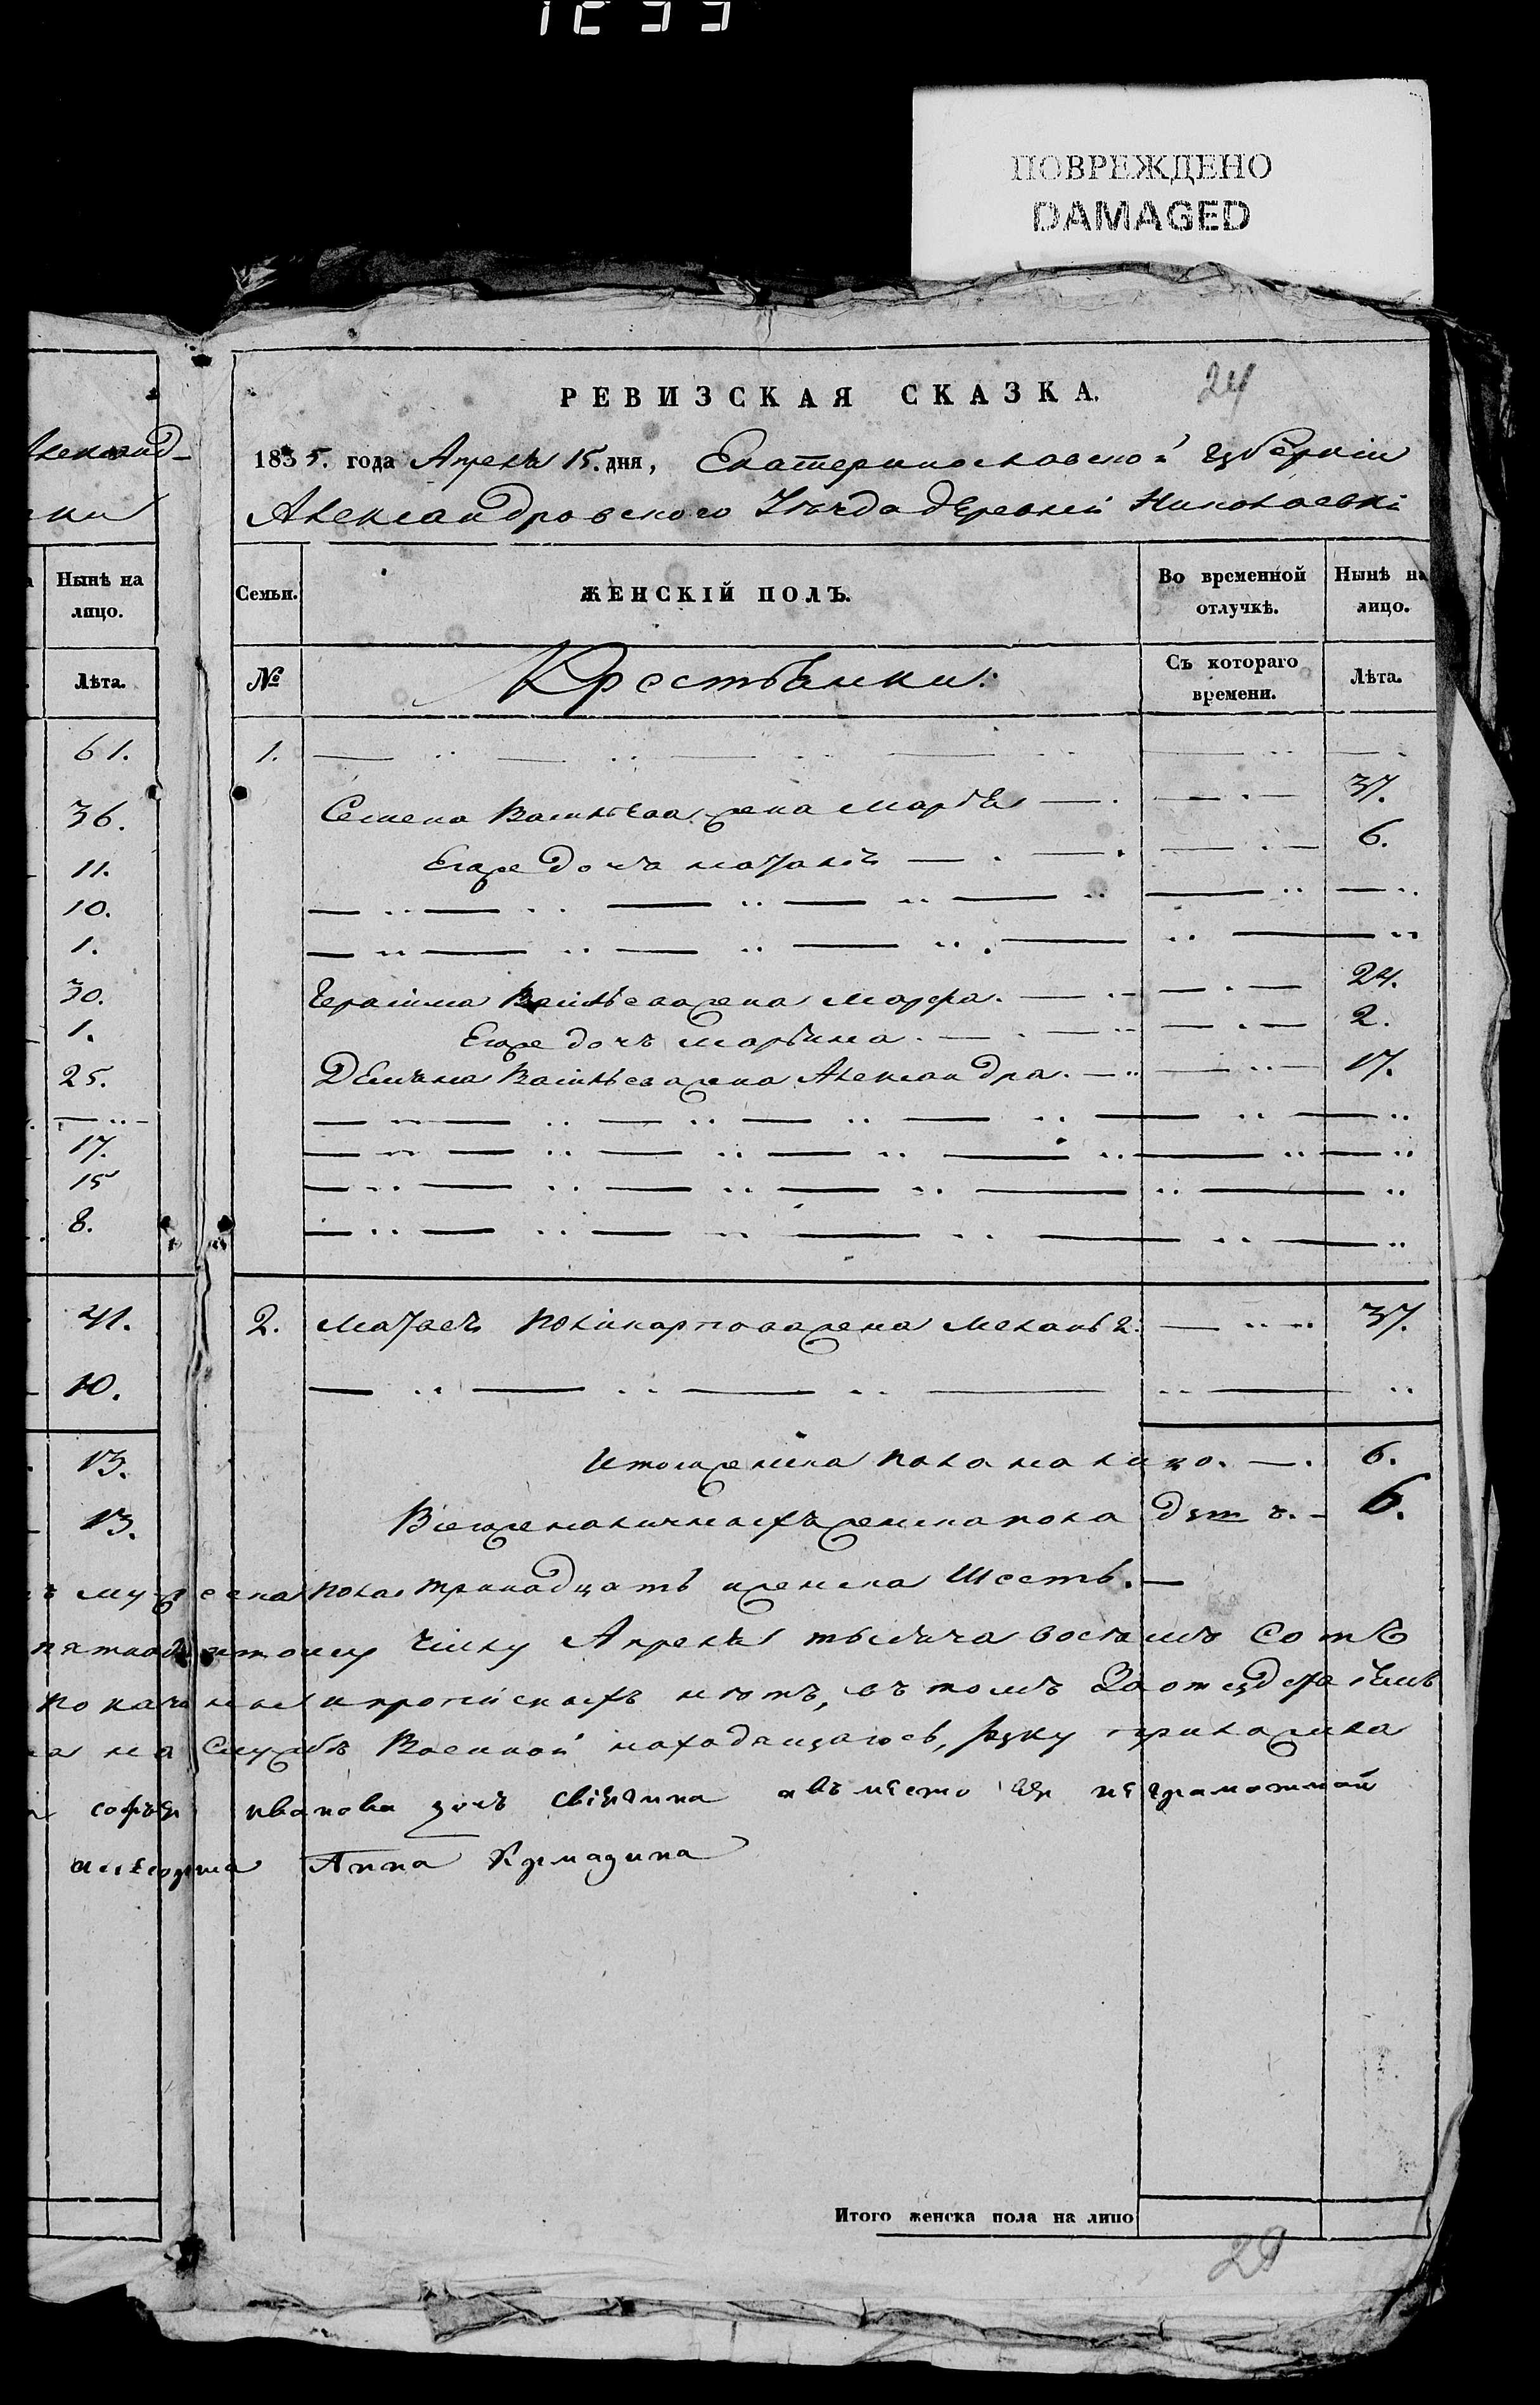 ПОВРЕЖДЕНО
DAMAGED
24
РЕВИЗСКАЯ СКАЗКА.
1835. года Апреля 15. дня, Екатеринославской губерніи
Александровскаго Уѣзда деревни Николаевки
Нынѣ на лицо.
Лѣта.
61.
36.
11.
10.
1.
30.
1.
25.
17.
15
8.
41.
10.
13.
13.
Семьи.
ЖЕНСКІЙ ПОЛЪ.
Во временной отлучкѣ.
Нынѣ на лицо.
№
Крестьянки:
Съ котораго времени.
Лѣта.
1.
Семена Васильева жена Марья 37.
Егоже дочь Наталья 6.
Герасима Васильева жена Марфа. 24.
Егоже дочь Марьяна. 2.
Демьяна Васильева жена Александра. 17.
2. Матвея Поликарпова жена Меланья 37.
Итого женска пола на лицо. 6.
Всего же наличныхъ женска пола душъ. 6.
мужеска пола тринадцать и женска Шесть.
пятнадцатому числу Апреля тысяча восемь Сотъ
и прописныхъ нѣтъ, въ томъ За отсудствіемъ
на Службѣ Военной находящагось, руку приложила
софья иванова дочь а въ место ея неграмотной
Анна
Итого женска пола на лицо
29